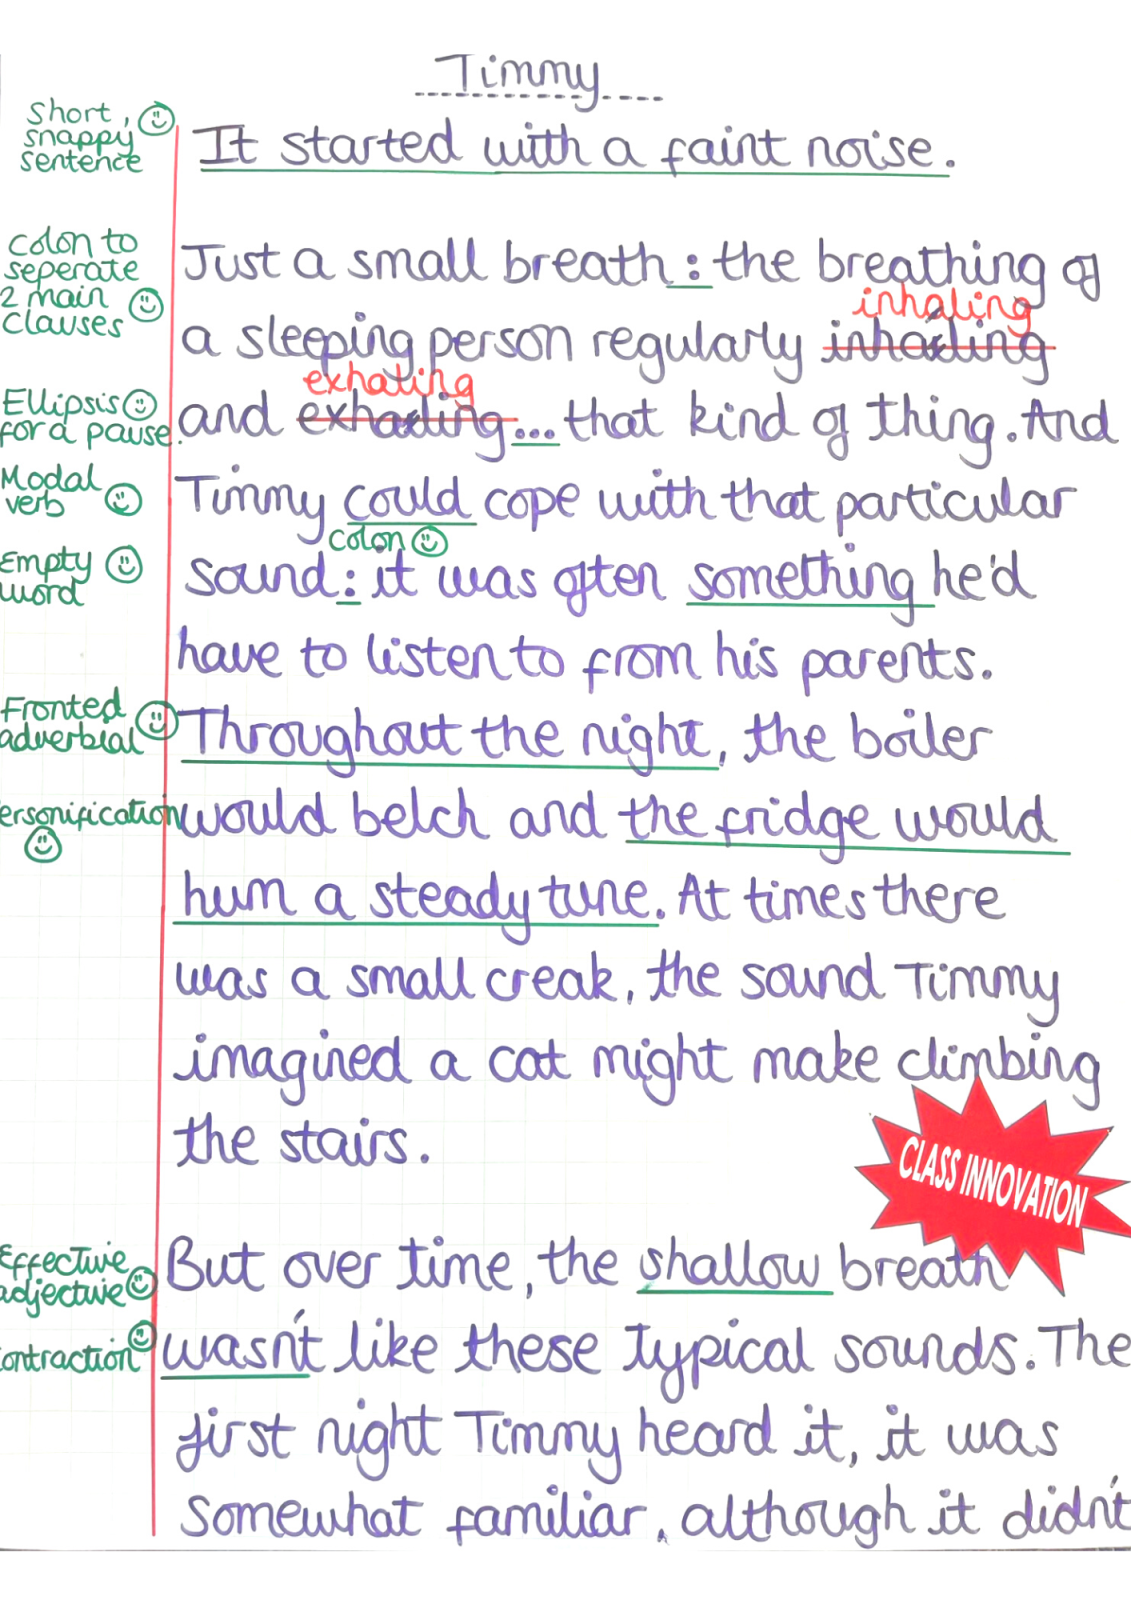 Timmy
Short,
snappy
sentence
It started with a faint noise.
colon to
seperate
2 main
clauses
Just a small breath: the breathing of
inhaling
a sleeping person regularly inhailing
exhaling
Ellipsis
for a pause.
and exhailing... that kind of thing. And
Modal
verb
Timmy could cope with that particular
colon
Empty
word
sound: it was often something he'd
have to listen to from his parents.
Fronted
adverbial
Throughout the night, the boiler
ersonification
would belch and the fridge would
hum a steady tune. At times there
was a small creak, the sound Timmy
imagined a cat might make climbing
the stairs.
CLASS INNOVATION
Effective
adjective
But over time, the shallow breath
ontraction
wasn't like these typical sounds. The
first night Timmy heard it, it was
somewhat familiar, although it didn't